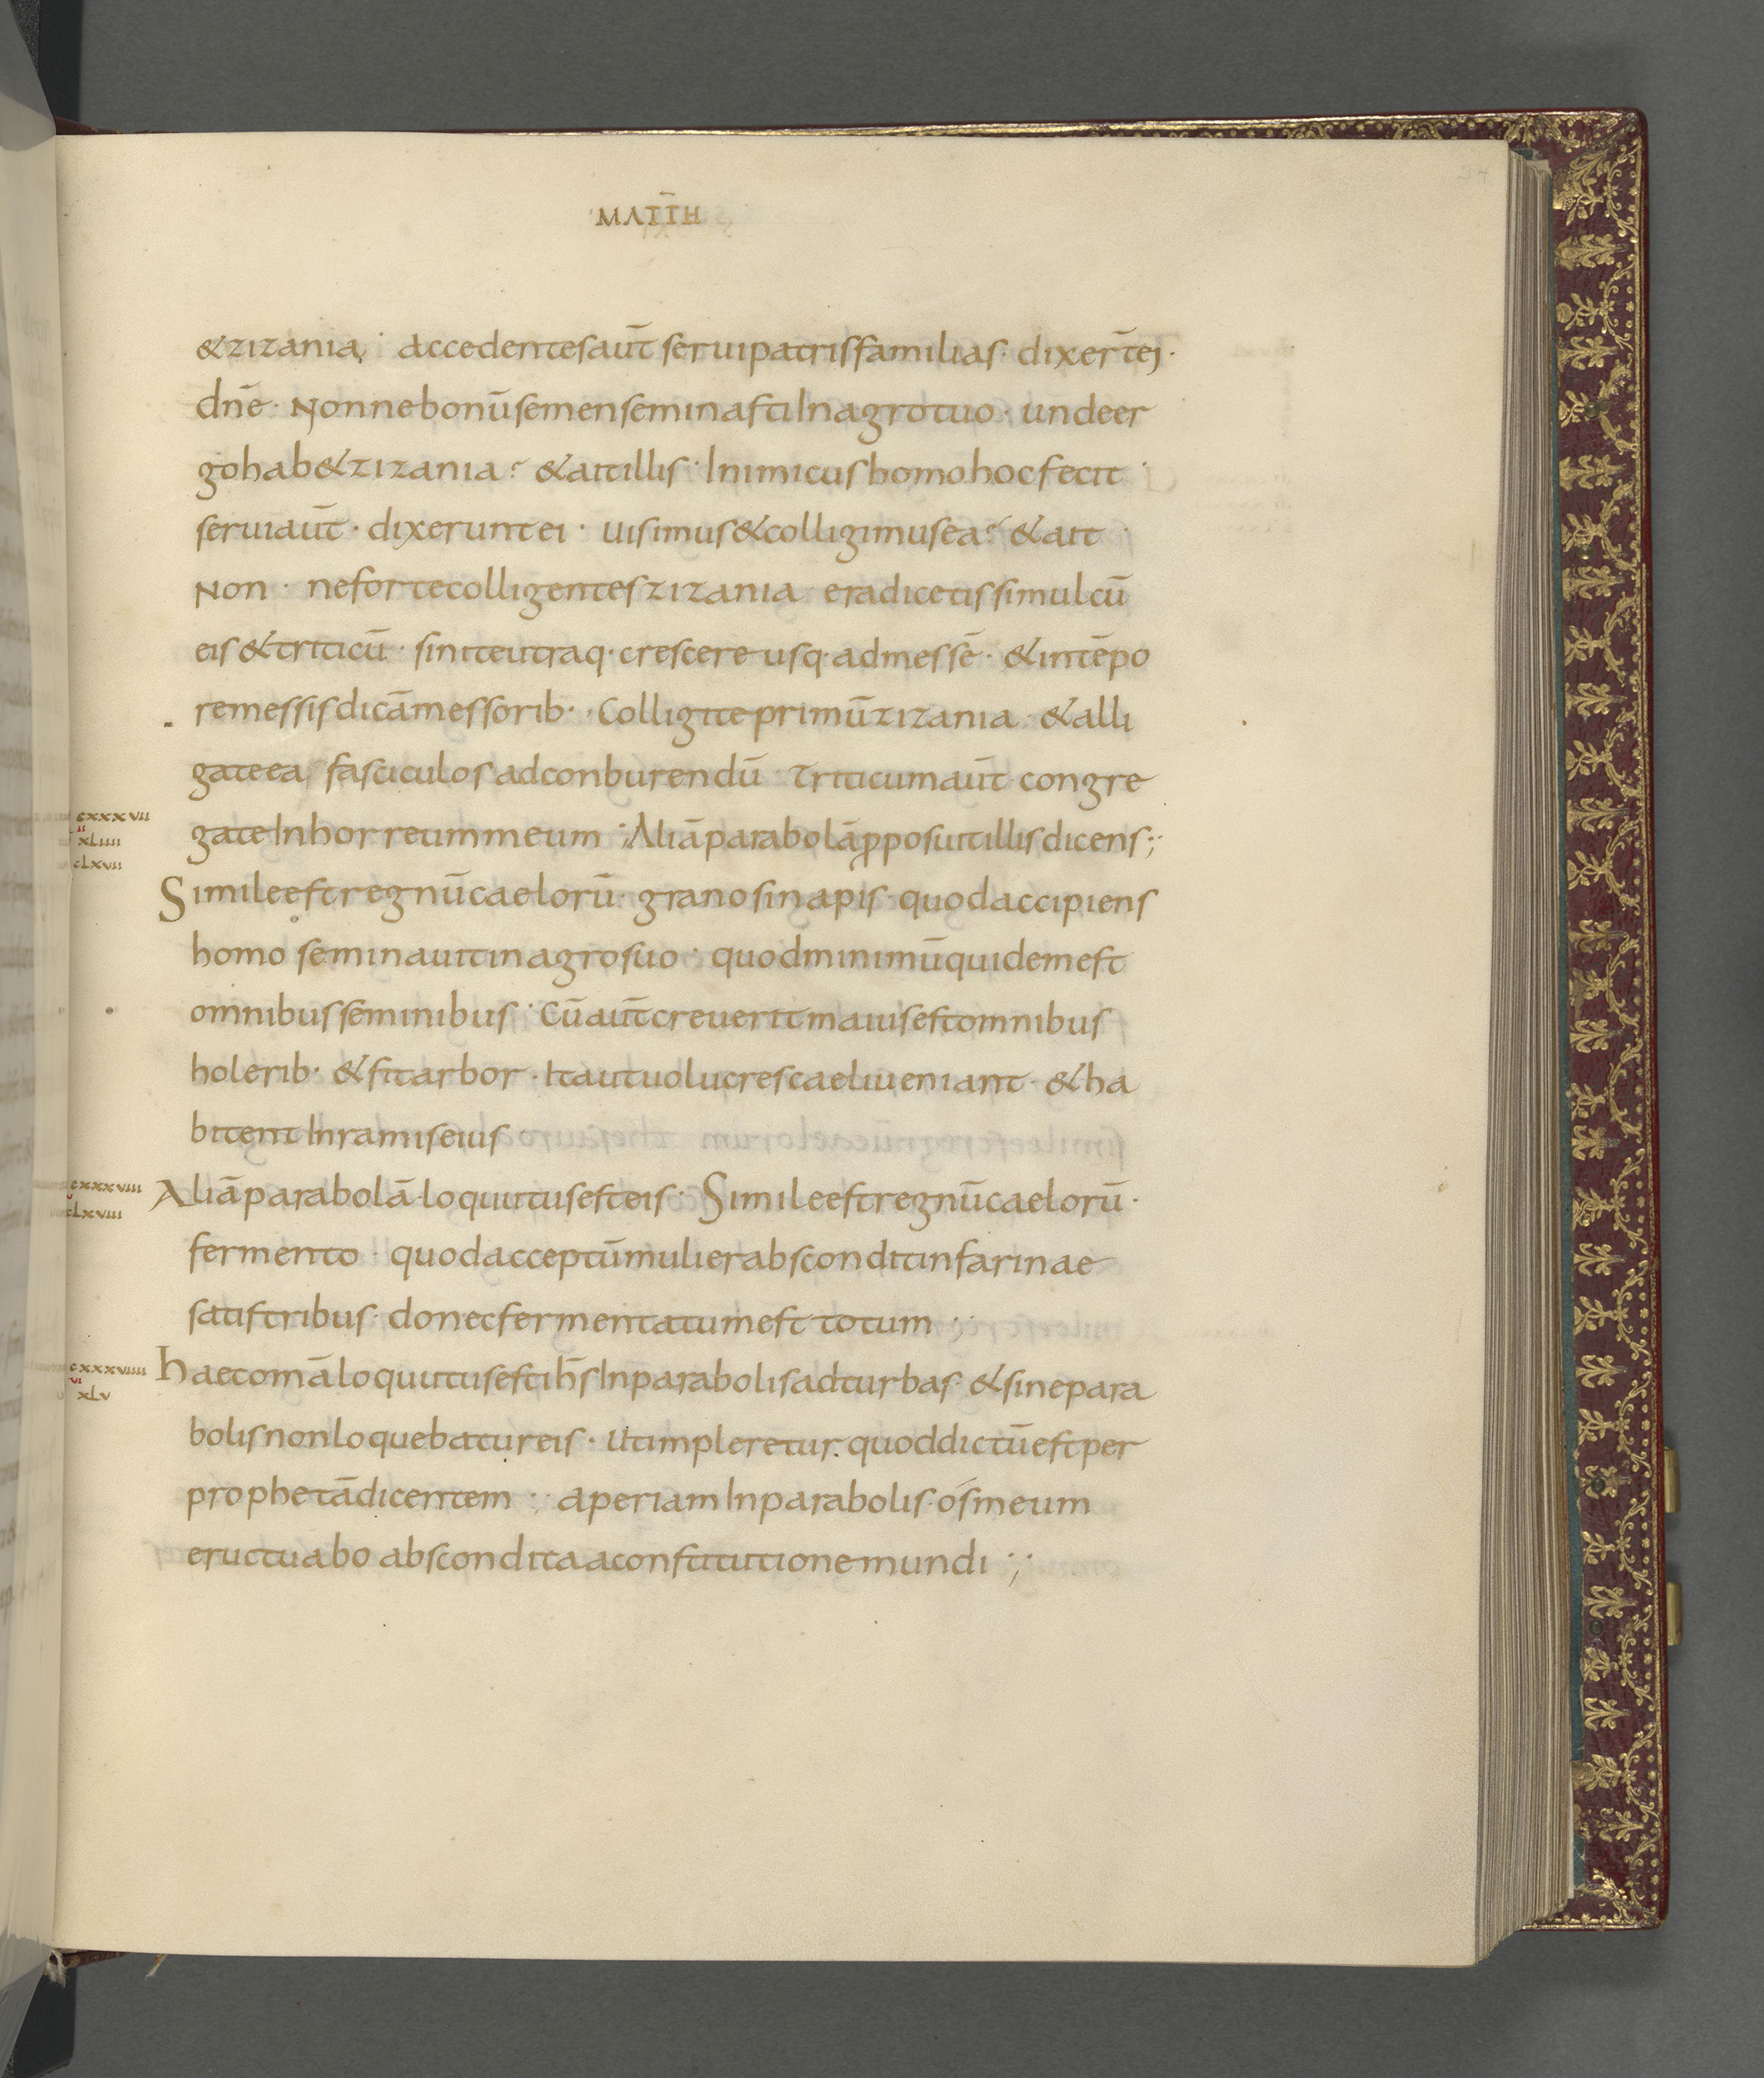 MATTH̄
37
&zizania, accedentes aut̄ serui patrisfamilias· dixer̄t ei·
dn̄e· Nonne bonū semen seminasti In agro tuo· unde er
go hab& zizania? & ait illis· Inimicus homo hoc fecit·
serui aut̄· dixerunt ei· uis imus & colligimus ea? & ait·
Non· ne forte colligentes zizania eradicetis simul cū
eis & triticū· sinite utraq· crescere usq· ad messē· & in tēpo
re messis dicā messorib·· Colligite primū zizania & alli
gate ea, fasciculos ad conburendū· Triticum aut̄ congre
gate In horreum meum ; Aliā parabolā pposuit illis dicens ;
cxxxvii
ii
xLiiii
cLxvii
Simile est regnū caelorū· grano sinapis· quod accipiens
homo seminauit in agro suo· quod minimū quidem est
omnibus seminibus· Cū aut̄ creuerit maius est omnibus
holerib· & fit arbor· Ita ut uolucres caeli ueniant· & ha
bitent In ramis eius
cxxxviii
v
cLxviii
Aliā parabolā loquutus est eis· Simile est regnū caelorū·
fermento· quod acceptū mulier abscondit in farinae
satis tribus· donec fermentatum est totum ;
cxxxviiii
vi
xLv
Haec omā loquutus est ih̄s In parabolis ad turbas· & sine para
bolis non loquebatur eis· Ut impleretur· quod dictū est per
prophetā dicentem : aperiam In parabolis· ós meum
eructuabo abscondita a constitutione mundi ;